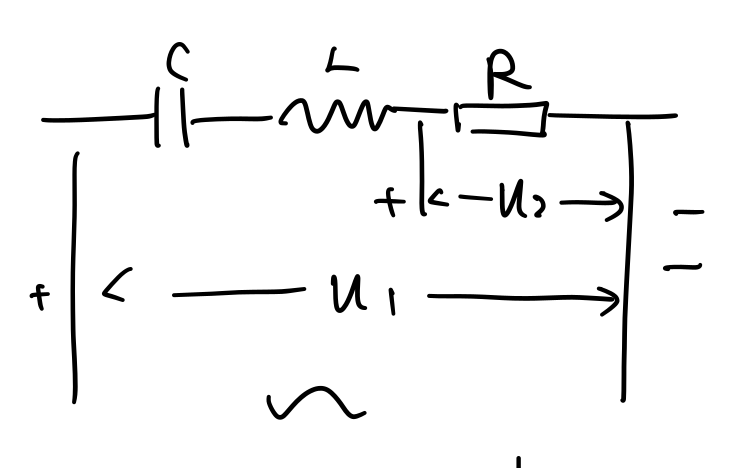 C L R
+ U2 −
+ U1 −
~